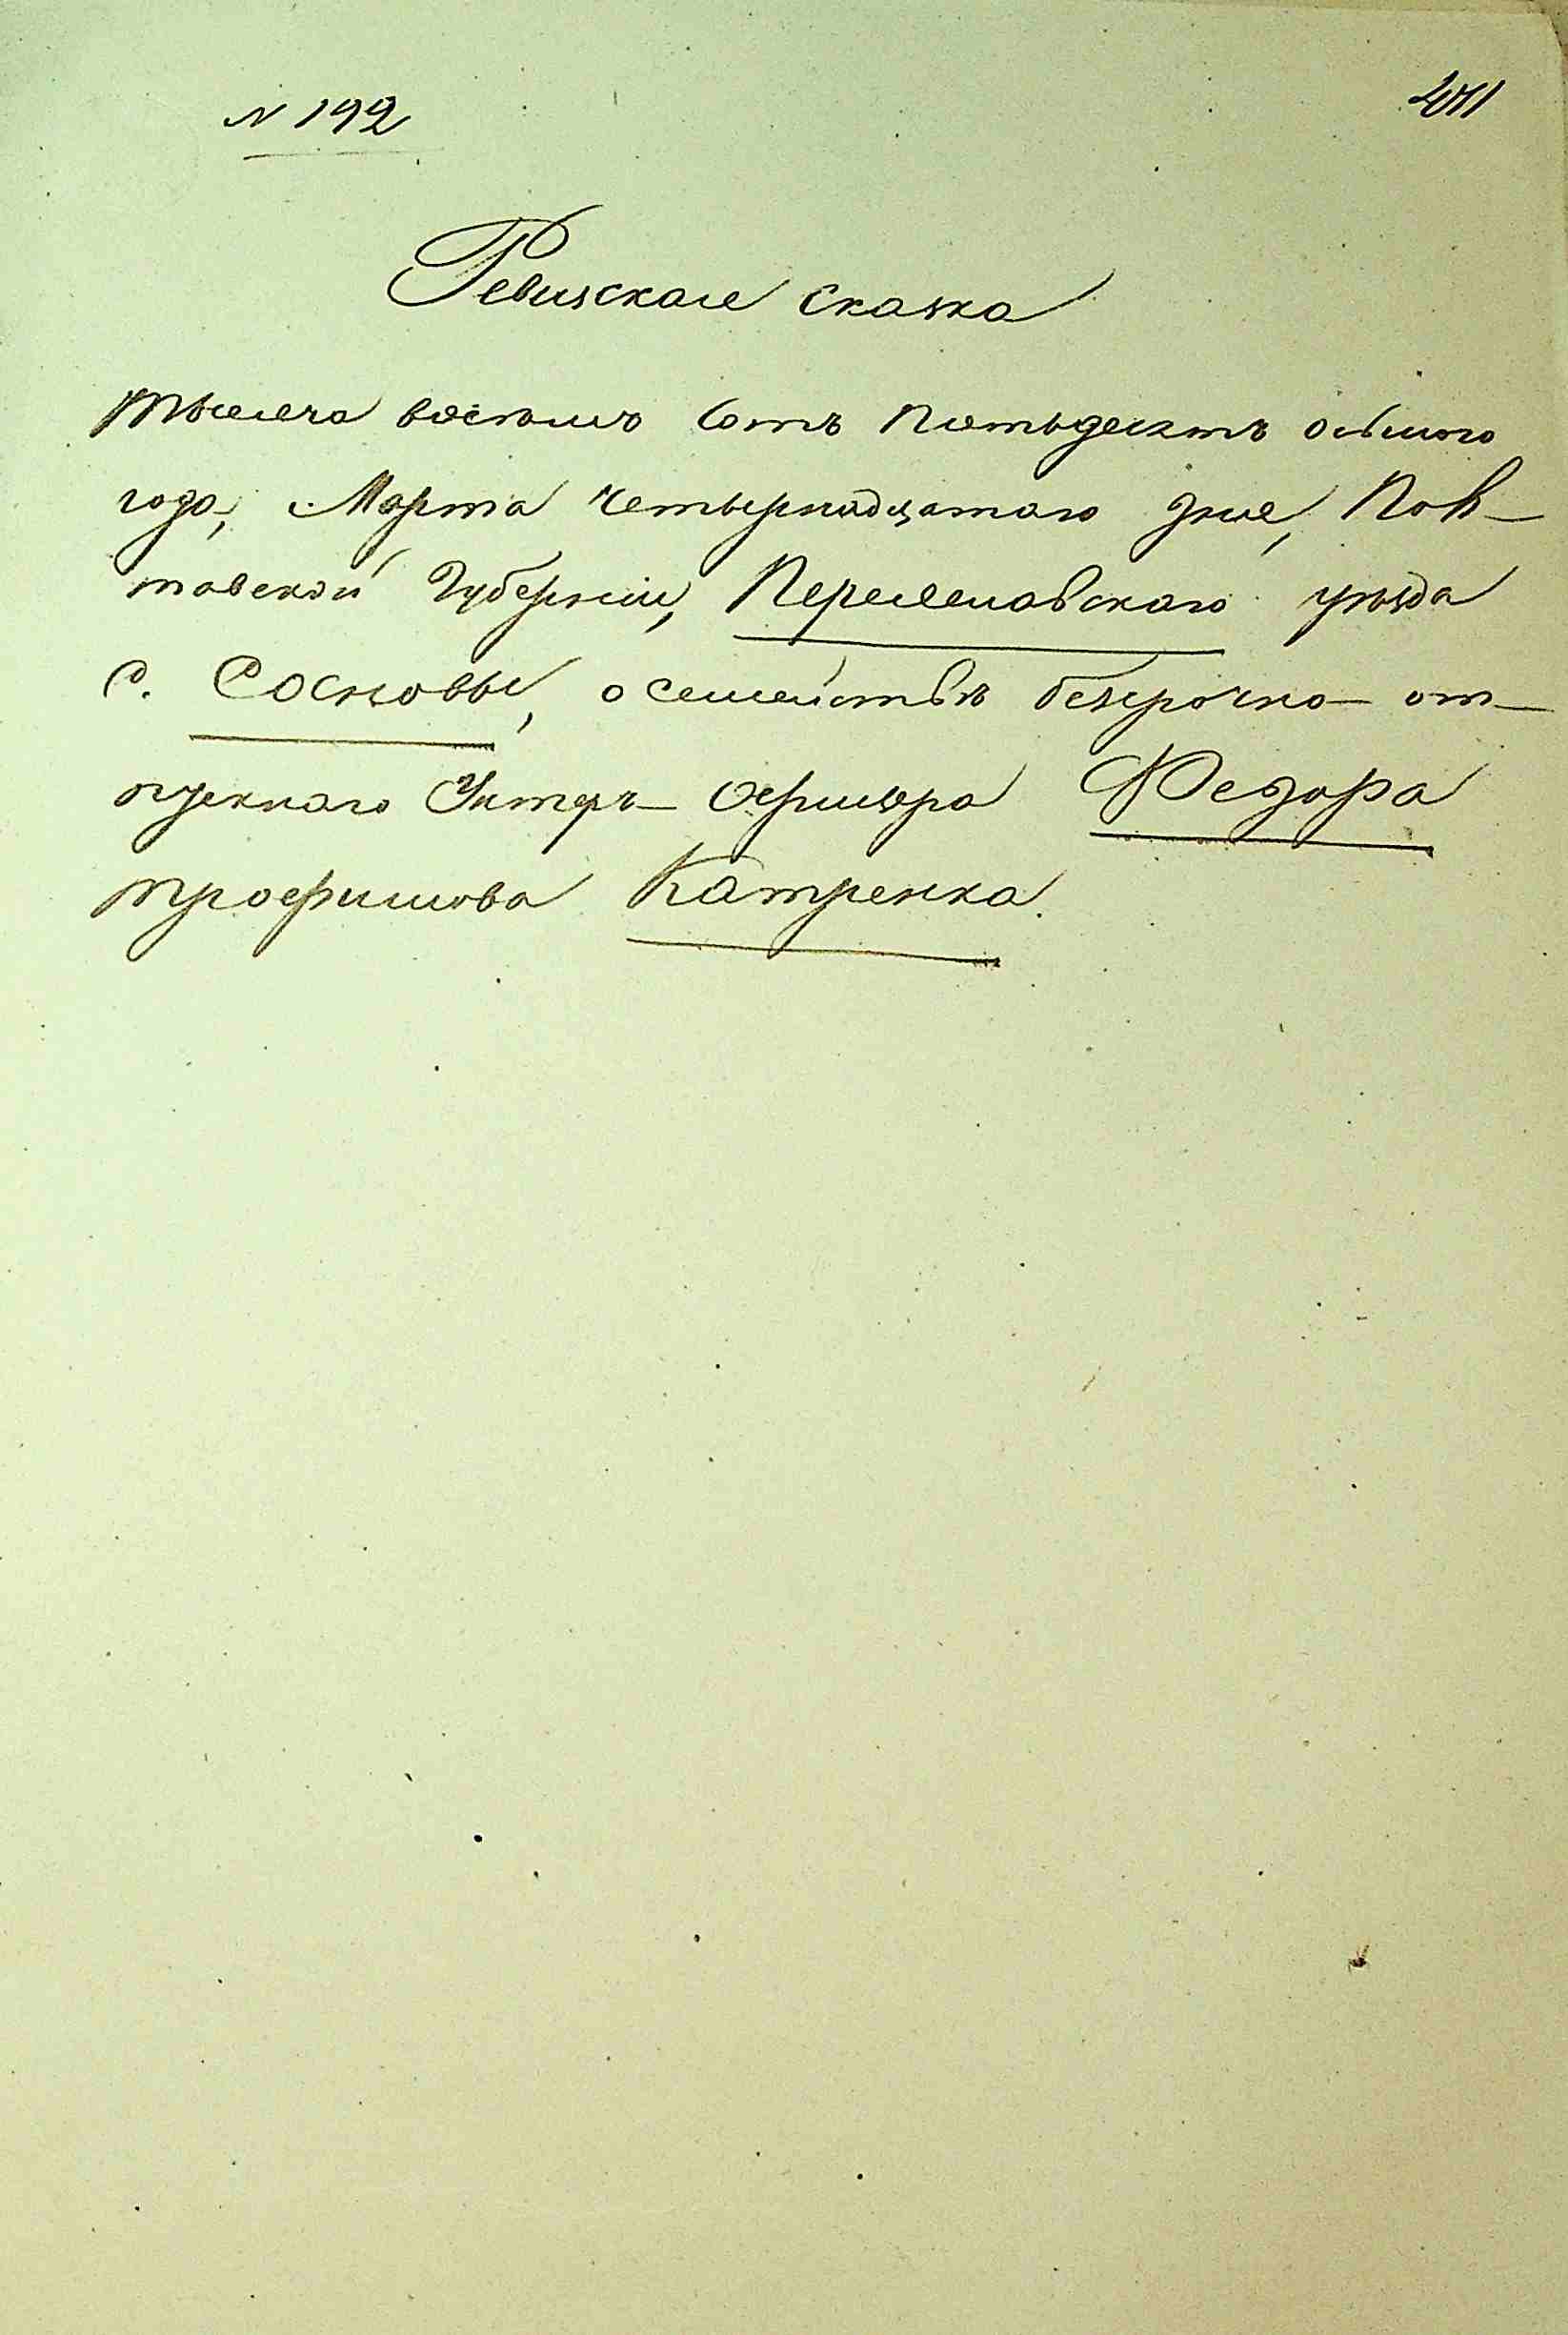 N 192
Ревизская сказка
Тысяча восемь сотъ пятьдесятъ осьмого
года, Марта четырнадцатаго дня, Пол-
тавской Губерніи, Переяславскаго уѣзда
с. Сосновы, о семействѣ безсрочно-от-
пускнаго Унтеръ-Офицера Федора
Трофимова Катренка.